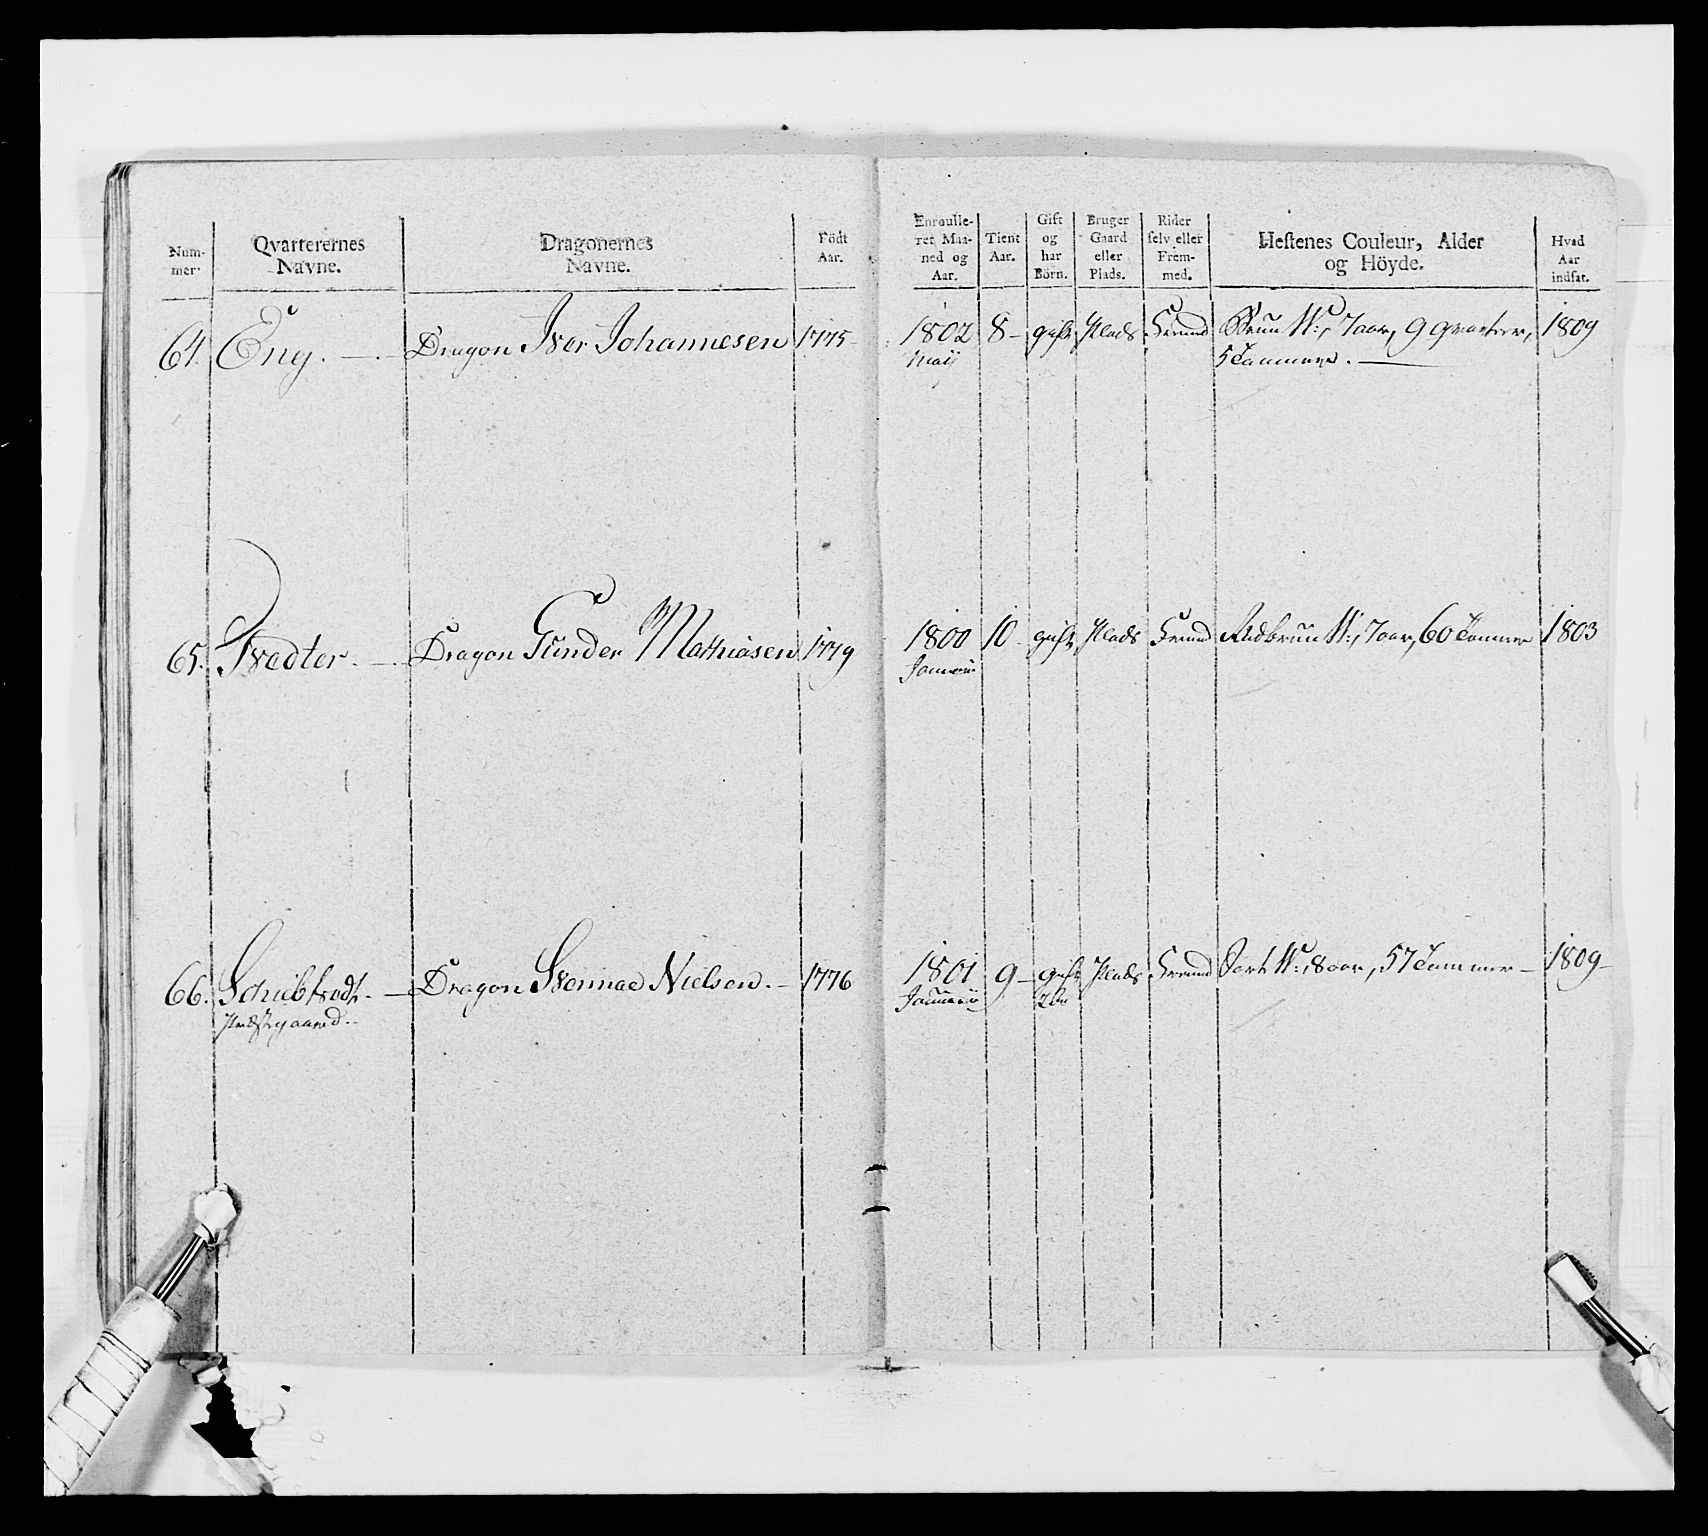 Num-
mer.
Qvarterernes
Navne.
Dragonernes
Navne.
Födt
Aar.
Enroulle-
ret, Maa-
ned og
Aar.
Tient
Aar.
Gift
og
har
Börn.
Bruger
Gaard
eller
Plads.
Rider
selv eller
Frem-
med.
Hestenes Couleur, Alder
og Höyde.
Hvad
Aar
indsat.
64. Eng. Dragon Iver Johannesen 1775 1802 8 gift Plads Fremd Bruun W: 7 aar, 9 qvarteer, 1809
Maij 5 Tommer.
65. Tvedter. Dragon Gunder Mathiasen 1779 1800 10 gift Plads Fremd Rødbruun W: 7 aar, 60 Tommer 1803
Januarii
66. Dragon Nielsen. 1776 1801 9 gift Plads Fremd Sort W: 8 aar, 57 Tommer 1809
Præstegaard. Januarii